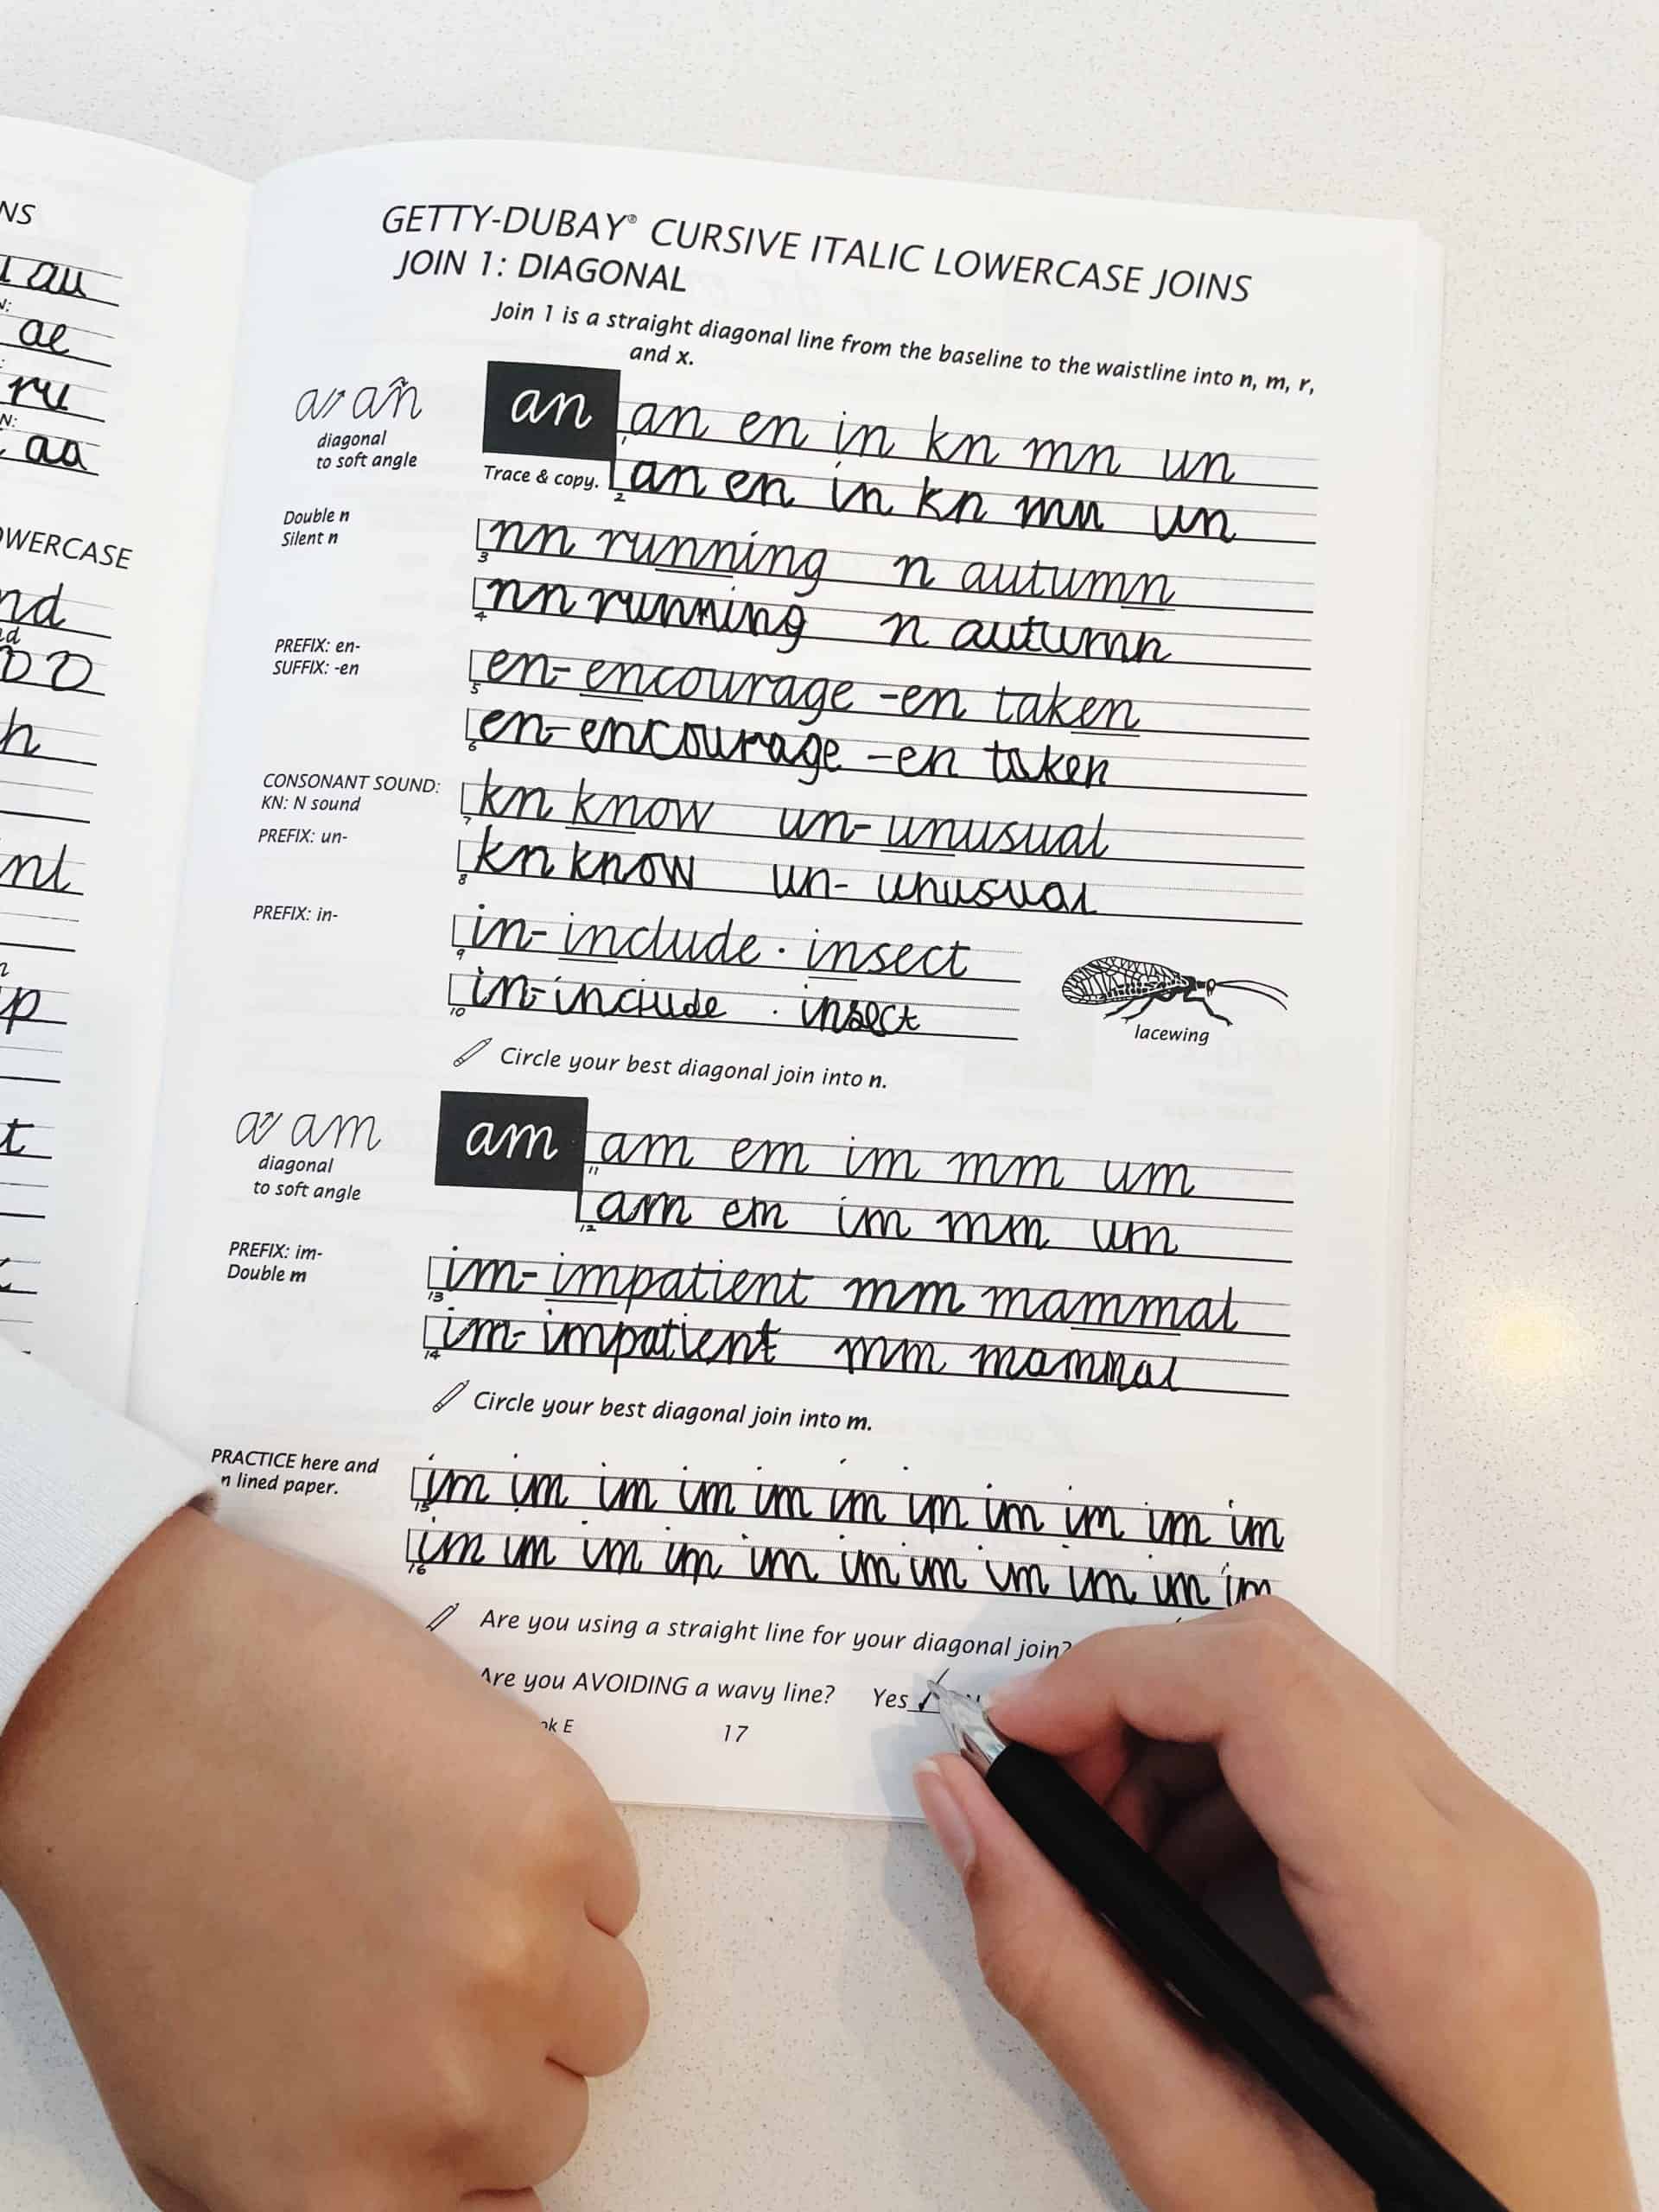 NS
au
ae
ru
aa
OWERCASE
nd
h
GETTY-DUBAY® CURSIVE ITALIC LOWERCASE JOINS
JOIN 1: DIAGONAL
Join 1 is a straight diagonal line from the baseline to the waistline into n, m, r,
and x.
an
diagonal
to soft angle
an
1 an en in kn mn un
Trace & copy.
2 an en in kn mn un
Double n
Silent n
3 nn running n autumn
4 nn running n autumn
PREFIX: en-
SUFFIX: -en
5 en- encourage -en taken
6 en- encourage -en taken
CONSONANT SOUND:
KN: N sound
7 kn know un- unusual
PREFIX: un-
8 kn know un- unusual
PREFIX: in-
9 in- include · insect
10 in- include · insect
lacewing
Circle your best diagonal join into n.
am
diagonal
to soft angle
am
11 am em im mm um
12 am em im mm um
PREFIX: im-
Double m
13 im- impatient mm mammal
14 im- impatient mm mammal
Circle your best diagonal join into m.
PRACTICE here and
n lined paper.
15 im im im im im im im im im im im
16 im im im im im im im im im im im
Are you using a straight line for your diagonal join?
Are you AVOIDING a wavy line? Yes
ok E
17